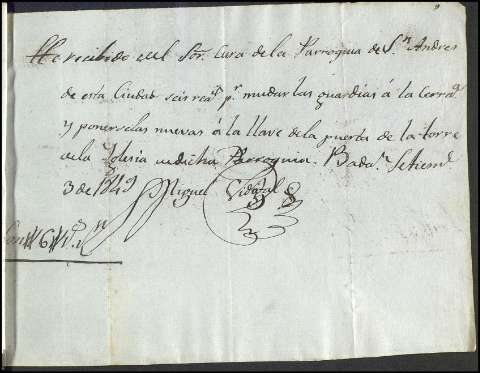 He recibido del Sor. Cura de la Parroquia de Sn. Andres
de esta Ciudad seis rea.s pr. mudar las guardias á la cerra.a
y ponerselas nuevas á la llave de la puerta de la torre
de la Iglesia de dicha Parroquia. Bada.z Setiem.e
3 de 1849 Miguel Vidal
Son 6 r.s vn